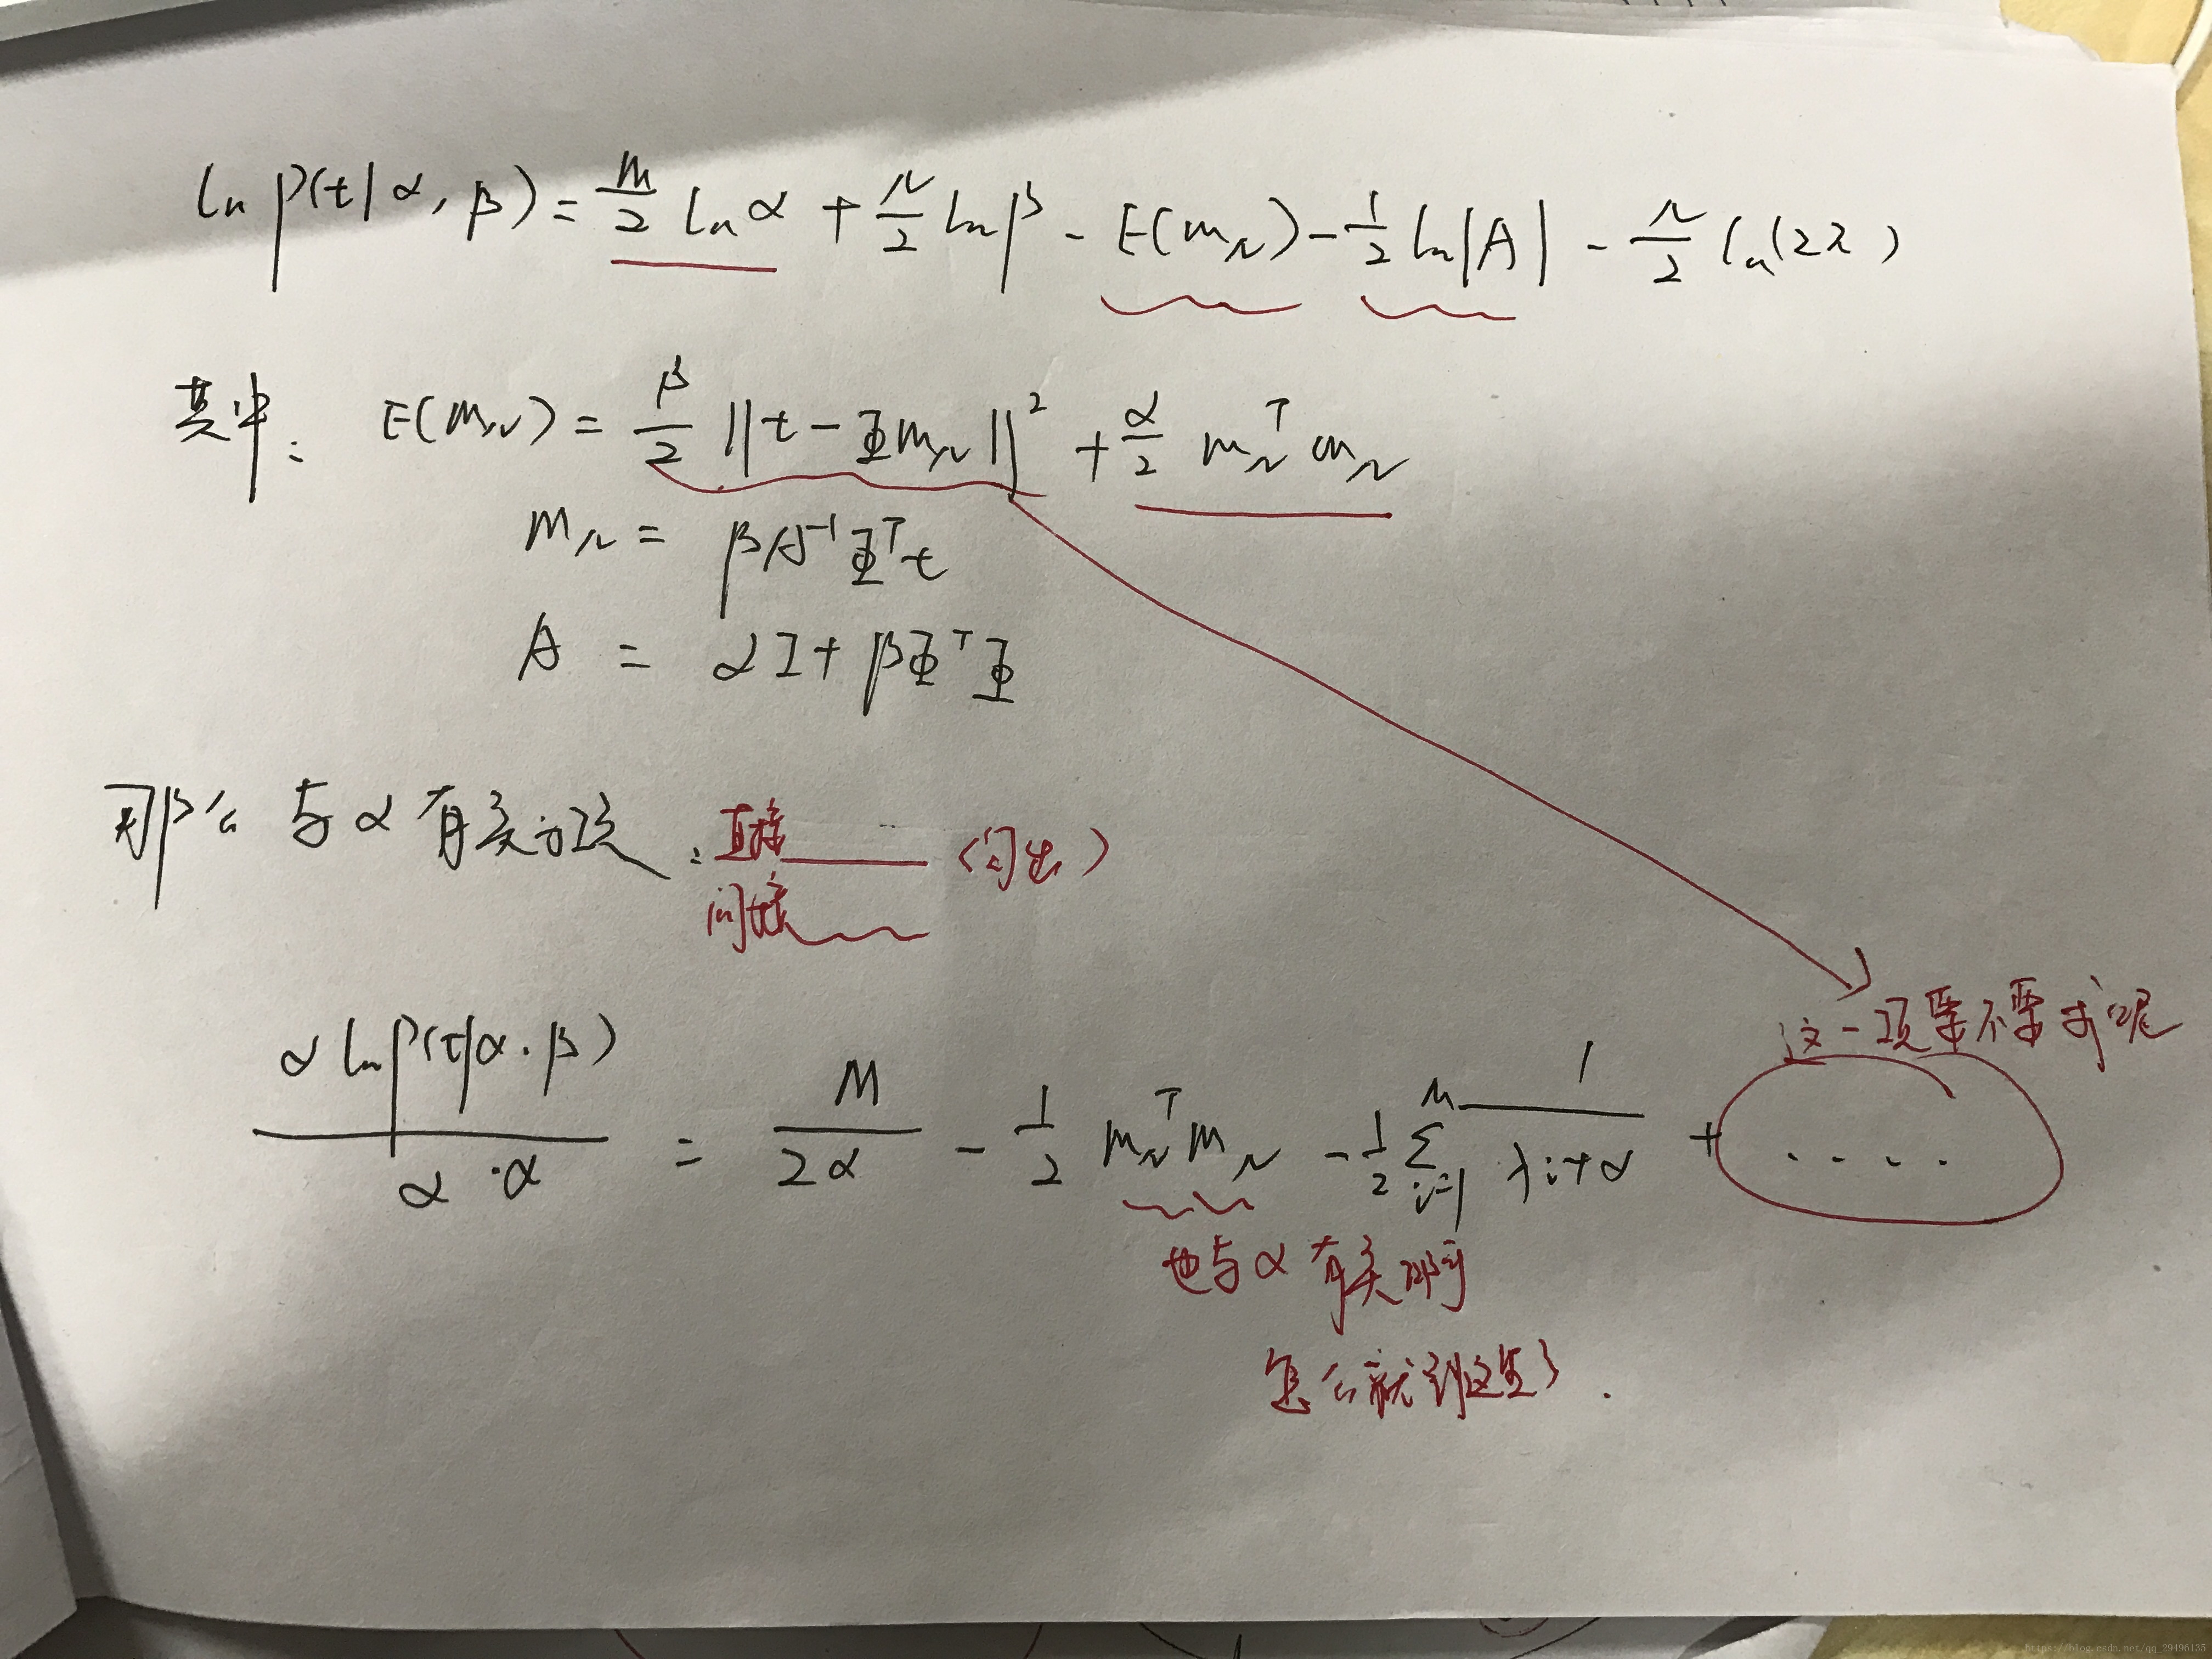 ln p(t|α, β) = M/2 ln α + N/2 ln β - E(m_N) - 1/2 ln|A| - N/2 ln(2π)
其中: E(m_N) = β/2 ||t - Φm_N||² + α/2 m_N^T m_N
m_N = βA⁻¹Φ^T t
A = αI + βΦ^TΦ
那么与α有关的项: 直接 (闭出)
间接
这一项要不要求呢
α ln p(t|α, β) / α·α = M/2α - 1/2 m_N^T m_N - 1/2 Σ_{i=1}^{M} 1/(λi+α) + ....
也与α有关啊
怎么就到这里了.
https://blog.csdn.net/qq_29496135